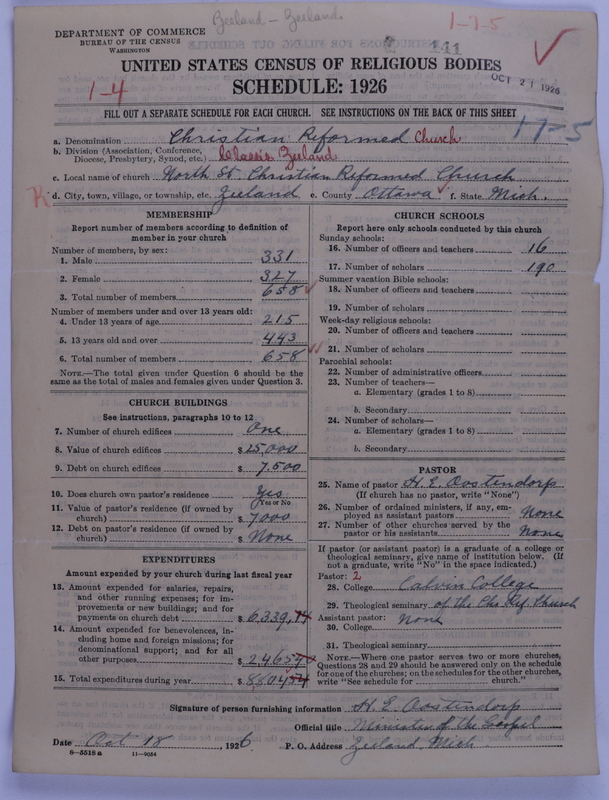 Zeeland - Zeeland.
1-7-5
DEPARTMENT OF COMMERCE
BUREAU OF THE CENSUS
WASHINGTON
141
UNITED STATES CENSUS OF RELIGIOUS BODIES
OCT 21 1926
SCHEDULE: 1926
1-4
FILL OUT A SEPARATE SCHEDULE FOR EACH CHURCH. SEE INSTRUCTIONS ON THE BACK OF THIS SHEET
17-5
a. Denomination Christian Reformed Church
b. Division (Association, Conference, Diocese, Presbytery, Synod, etc.) Classis Zeeland
c. Local name of church North St. Christian Reformed Church
d. City, town, village, or township, etc. Zeeland e. County Ottawa f. State Mich.
MEMBERSHIP
Report number of members according to definition of
member in your church
Number of members, by sex:
1. Male 331
2. Female 327
3. Total number of members 658
Number of members under and over 13 years old:
4. Under 13 years of age 215
5. 13 years old and over 443
6. Total number of members 658
NOTE.—The total given under Question 6 should be
same as the total of males and females given under Question 3.
CHURCH BUILDINGS
See instructions, paragraphs 10 to 12
7. Number of church edifices One
8. Value of church edifices $ 25,000
9. Debt on church edifices $ 7,500
10. Does church own pastor's residence Yes
Yes or No
11. Value of pastor's residence (if owned by
church) $ 7000
12. Debt on pastor's residence (if owned by
church) $ None
EXPENDITURES
Amount expended by your church during last fiscal year
13. Amount expended for salaries, repairs,
and other running expenses; for im-
provements or new buildings; and for
payments on church debt $ 6339,
14. Amount expended for benevolences, in-
cluding home and foreign missions; for
denominational support; and for all
other purposes $ 2465
15. Total expenditures during year $ 8804
CHURCH SCHOOLS
Report here only schools conducted by this church
Sunday schools:
16. Number of officers and teachers 16
17. Number of scholars 190
Summer vacation Bible schools:
18. Number of officers and teachers
19. Number of scholars
Week-day religious schools:
20. Number of officers and teachers
21. Number of scholars
Parochial schools:
22. Number of administrative officers
23. Number of teachers—
a. Elementary (grades 1 to 8)
b. Secondary
24. Number of scholars—
a. Elementary (grades 1 to 8)
b. Secondary
PASTOR
25. Name of pastor H. E. Oostendorp
(If church has no pastor, write "None")
26. Number of ordained ministers, if any, em-
ployed as assistant pastors None
27. Number of other churches served by the
pastor or his assistants None
If pastor (or assistant pastor) is a graduate of a college or
theological seminary, give name of institution below. (If
not a graduate, write "No" in the space indicated.)
Pastor: 2
28. College Calvin College
29. Theological seminary of the Chr. Ref. Church
Assistant pastor: None
30. College
31. Theological seminary
NOTE.—Where one pastor serves two or more churches,
Questions 28 and 29 should be answered only on the schedule
for one of the churches; on the schedules for the other churches,
write "See schedule for church."
Signature of person furnishing information H. E. Oostendorp
Official title Minister of the Gospel
Date Oct 18, 1926 P. O. Address Zeeland Mich
8-5518 a 11-9054